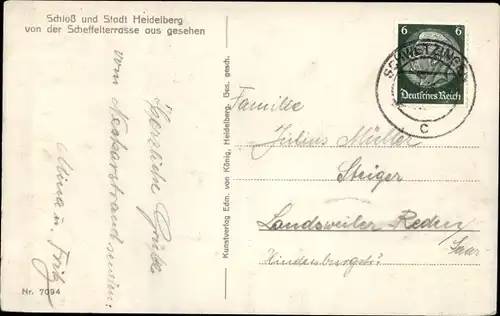 Schloß und Stadt Heidelberg
von der Scheffelterrasse aus gesehen
Herzliche Grüße
vom Neckarstrand senden:
Anna u. Fritz
Nr. 7094
Kunstverlag Edm. von König, Heidelberg. Ges. gesch.
6 6
Deutsches Reich
SCHWETZINGEN
c
Familie
Julius Müller
Steiger
Landsweiler-Reden
Saar
Hindenburgstr.